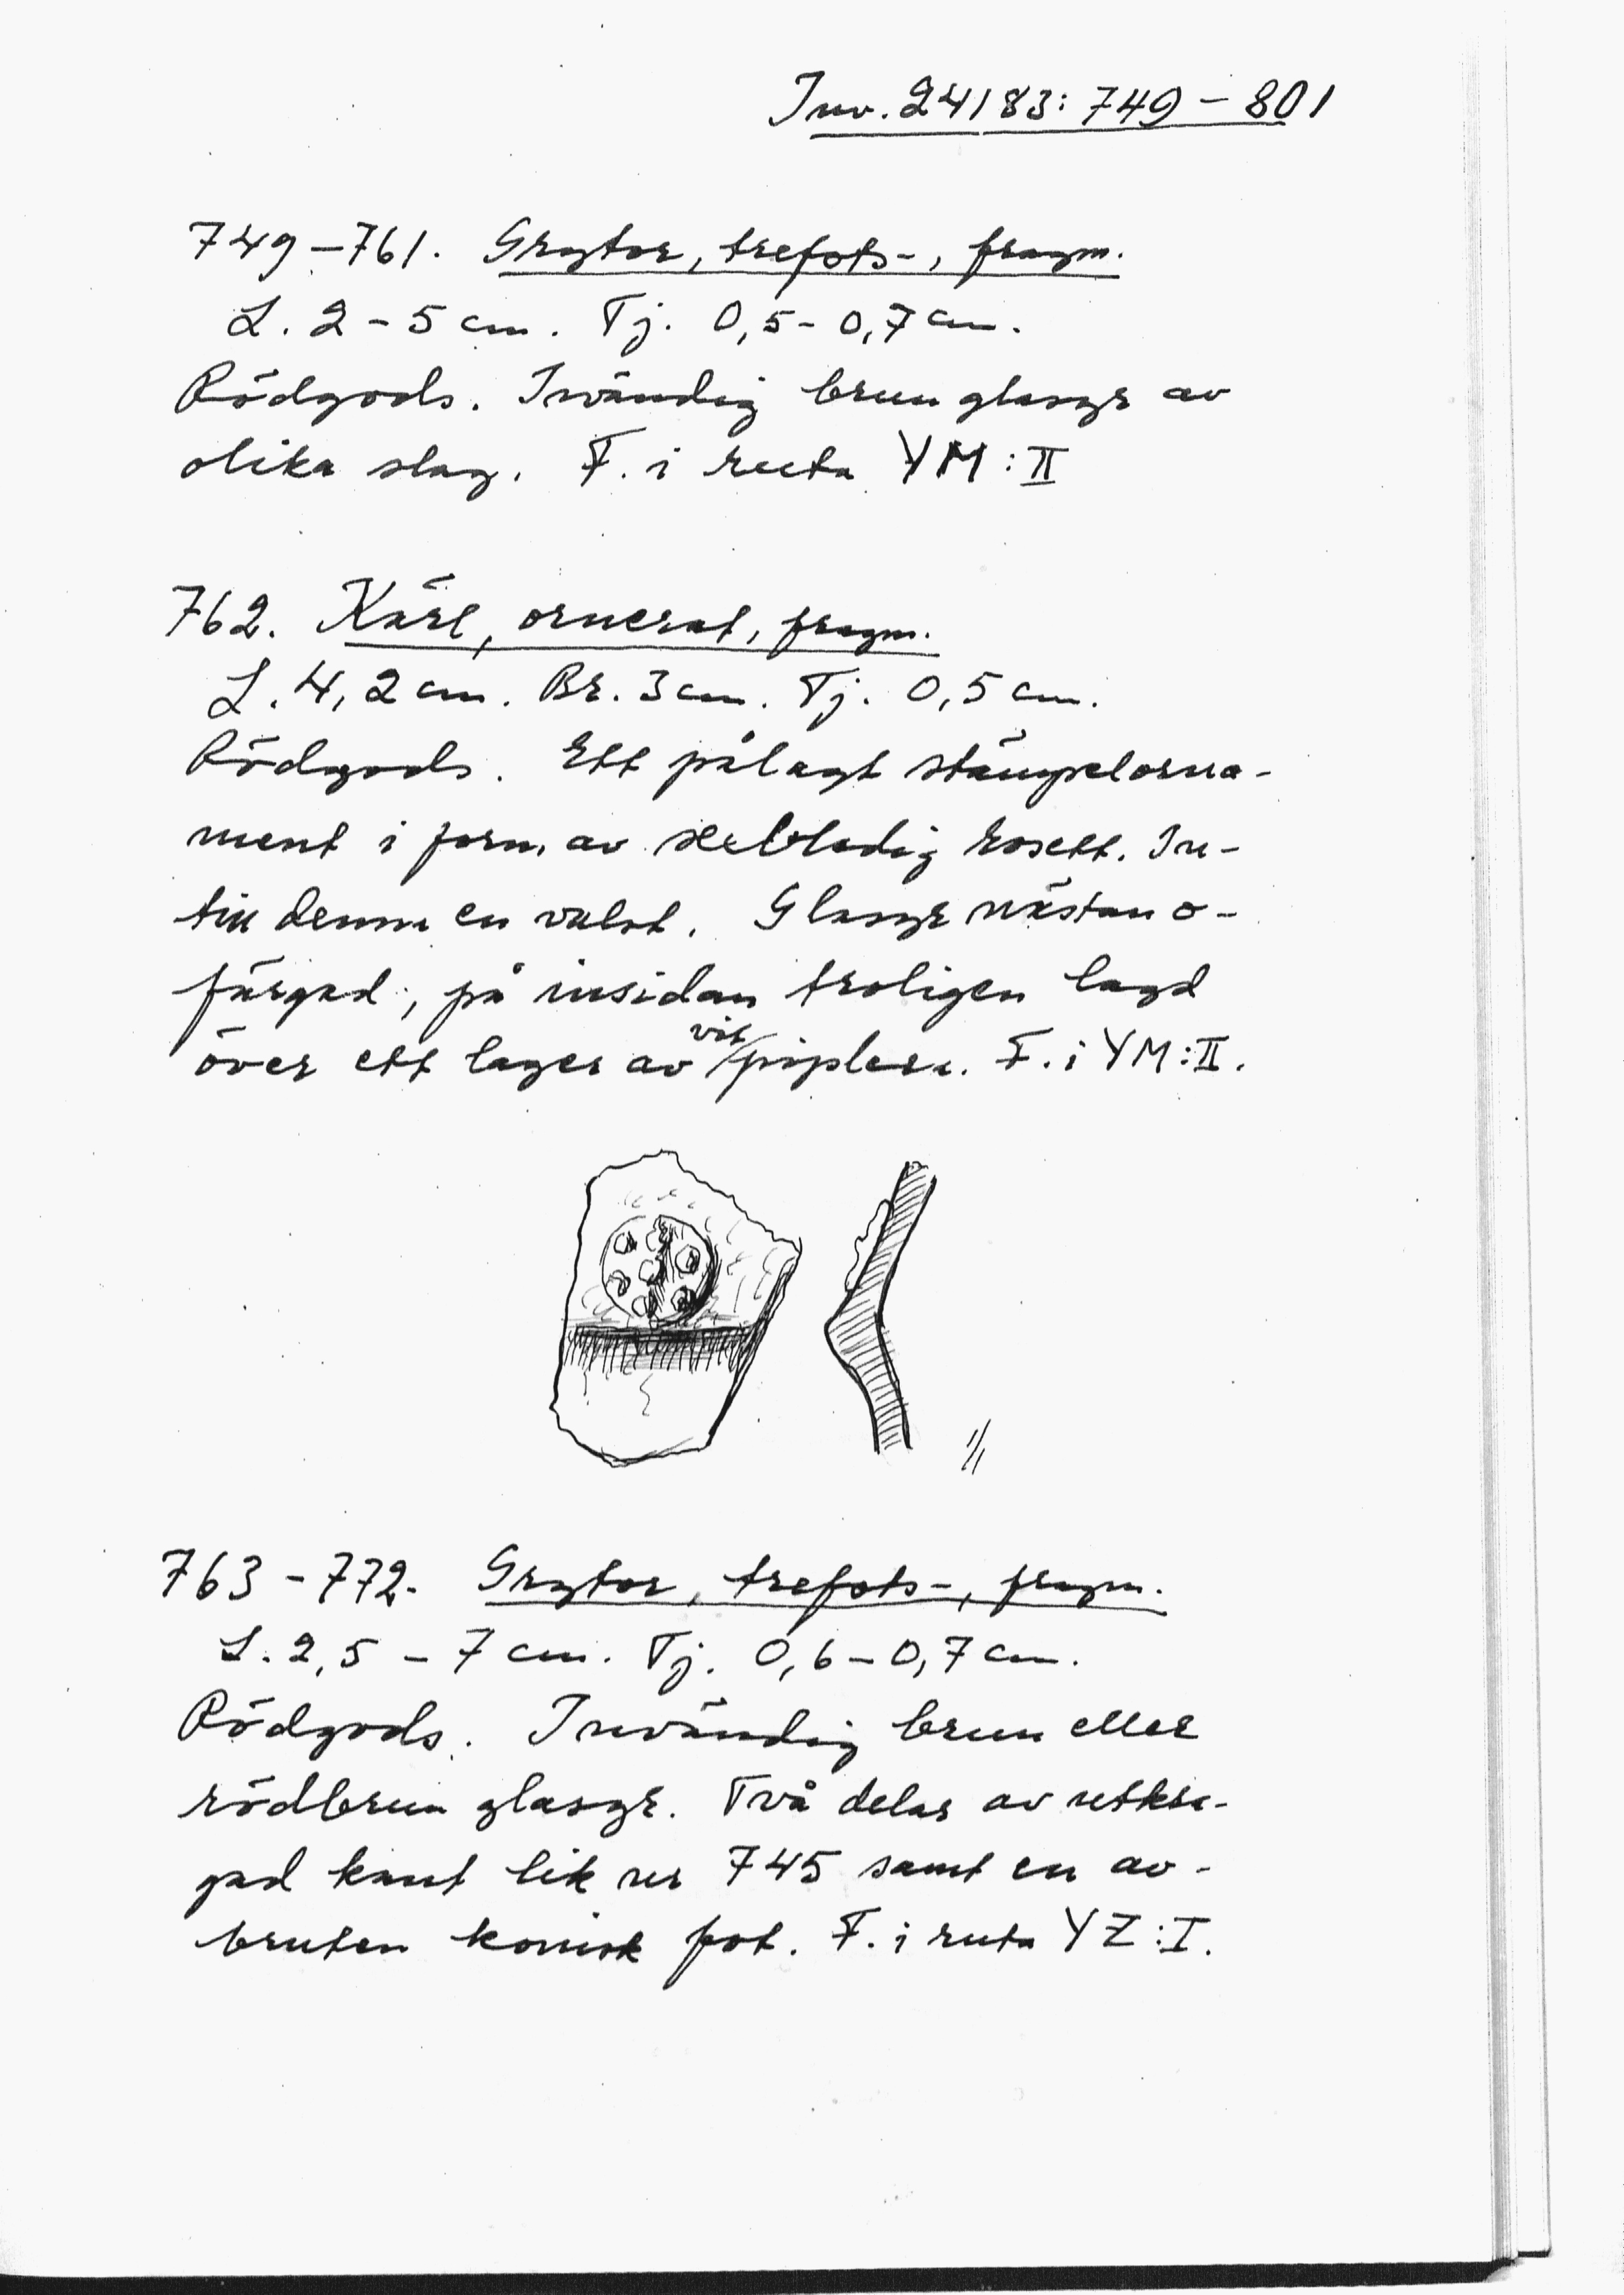 Inv. 24183: 749-801
749-761. Grytor, trefots-, fragm.
L. 2-5 cm. Tj. 0,5-0,7 cm.
Rödgods. Invändig brun glasyr av
olika slag. F. i ruta YM:II
762. Kärl, ornerat, fragm.
L. 4,2 cm. Br. 3 cm. Tj. 0,5 cm.
Rödgods. Ett pålagt stämpelorna-
ment i form av sexbladig rosett. In-
till denna en vulst. Glasyr nästan o-
färgad, på insidan troligen lagd
över ett lager av vit piplera. F. i YM:II.
1/1
763-772. Grytor, trefots-, fragm.
L. 2,5-7 cm. Tj. 0,6-0,7 cm.
Rödgods. Invändig brun eller
rödbrun glasyr. Två delar av utkra-
gad kant lik nr 745 samt en av-
bruten konisk fot. F. i ruta YZ:I.